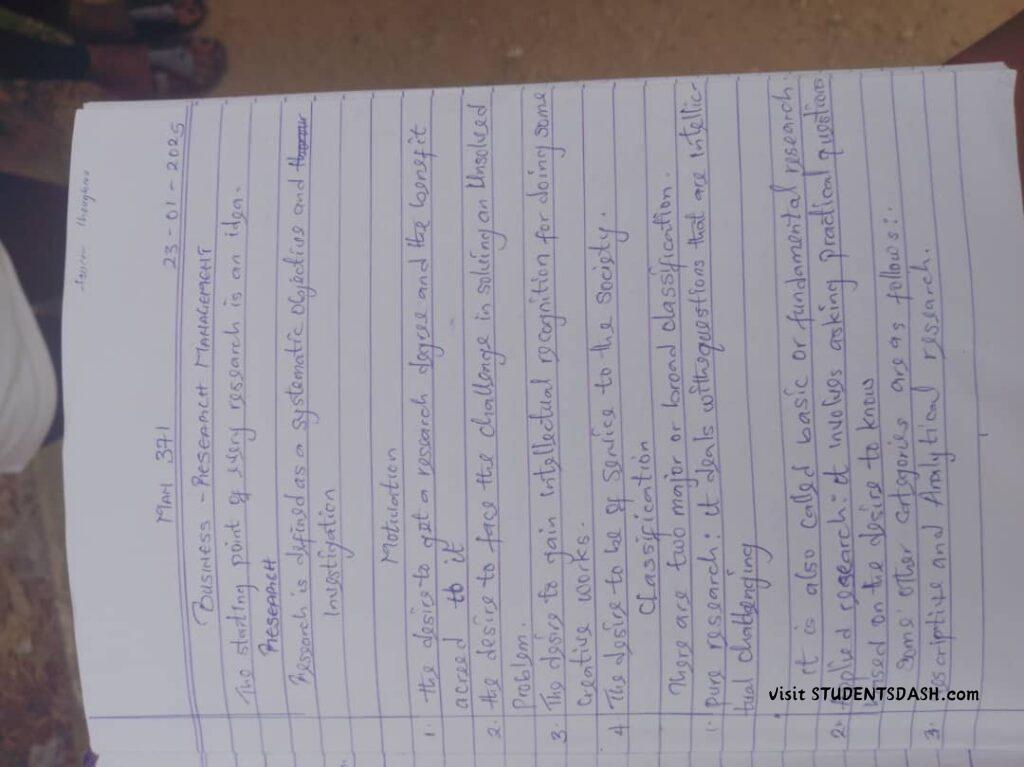 MAN 371
23-01-2025
BUSINESS - RESEARCH MANAGEMENT
The starting point of every research is an idea.
RESEARCH
Research is defined as a systematic objective and
Investigation
Motivation
1. the desire to get a research degree and the benefit
acreed to it
2. the desire to face the challenge in solving an Unsolved
Problem.
3. The desire to gain intellectual recognition for doing some
creative works.
4 The desire to be of service to the society.
Classification
There are two major or broad classification.
1. pure research: it deals with question that are intellic-
tual challenging
it is also called basic or fundamental research.
2. Applied research: it involves asking practical question
based on the desire to know
some other categories are as follows:
3. Descriptive and Analytical research.
visit STUDENTSDASH.com